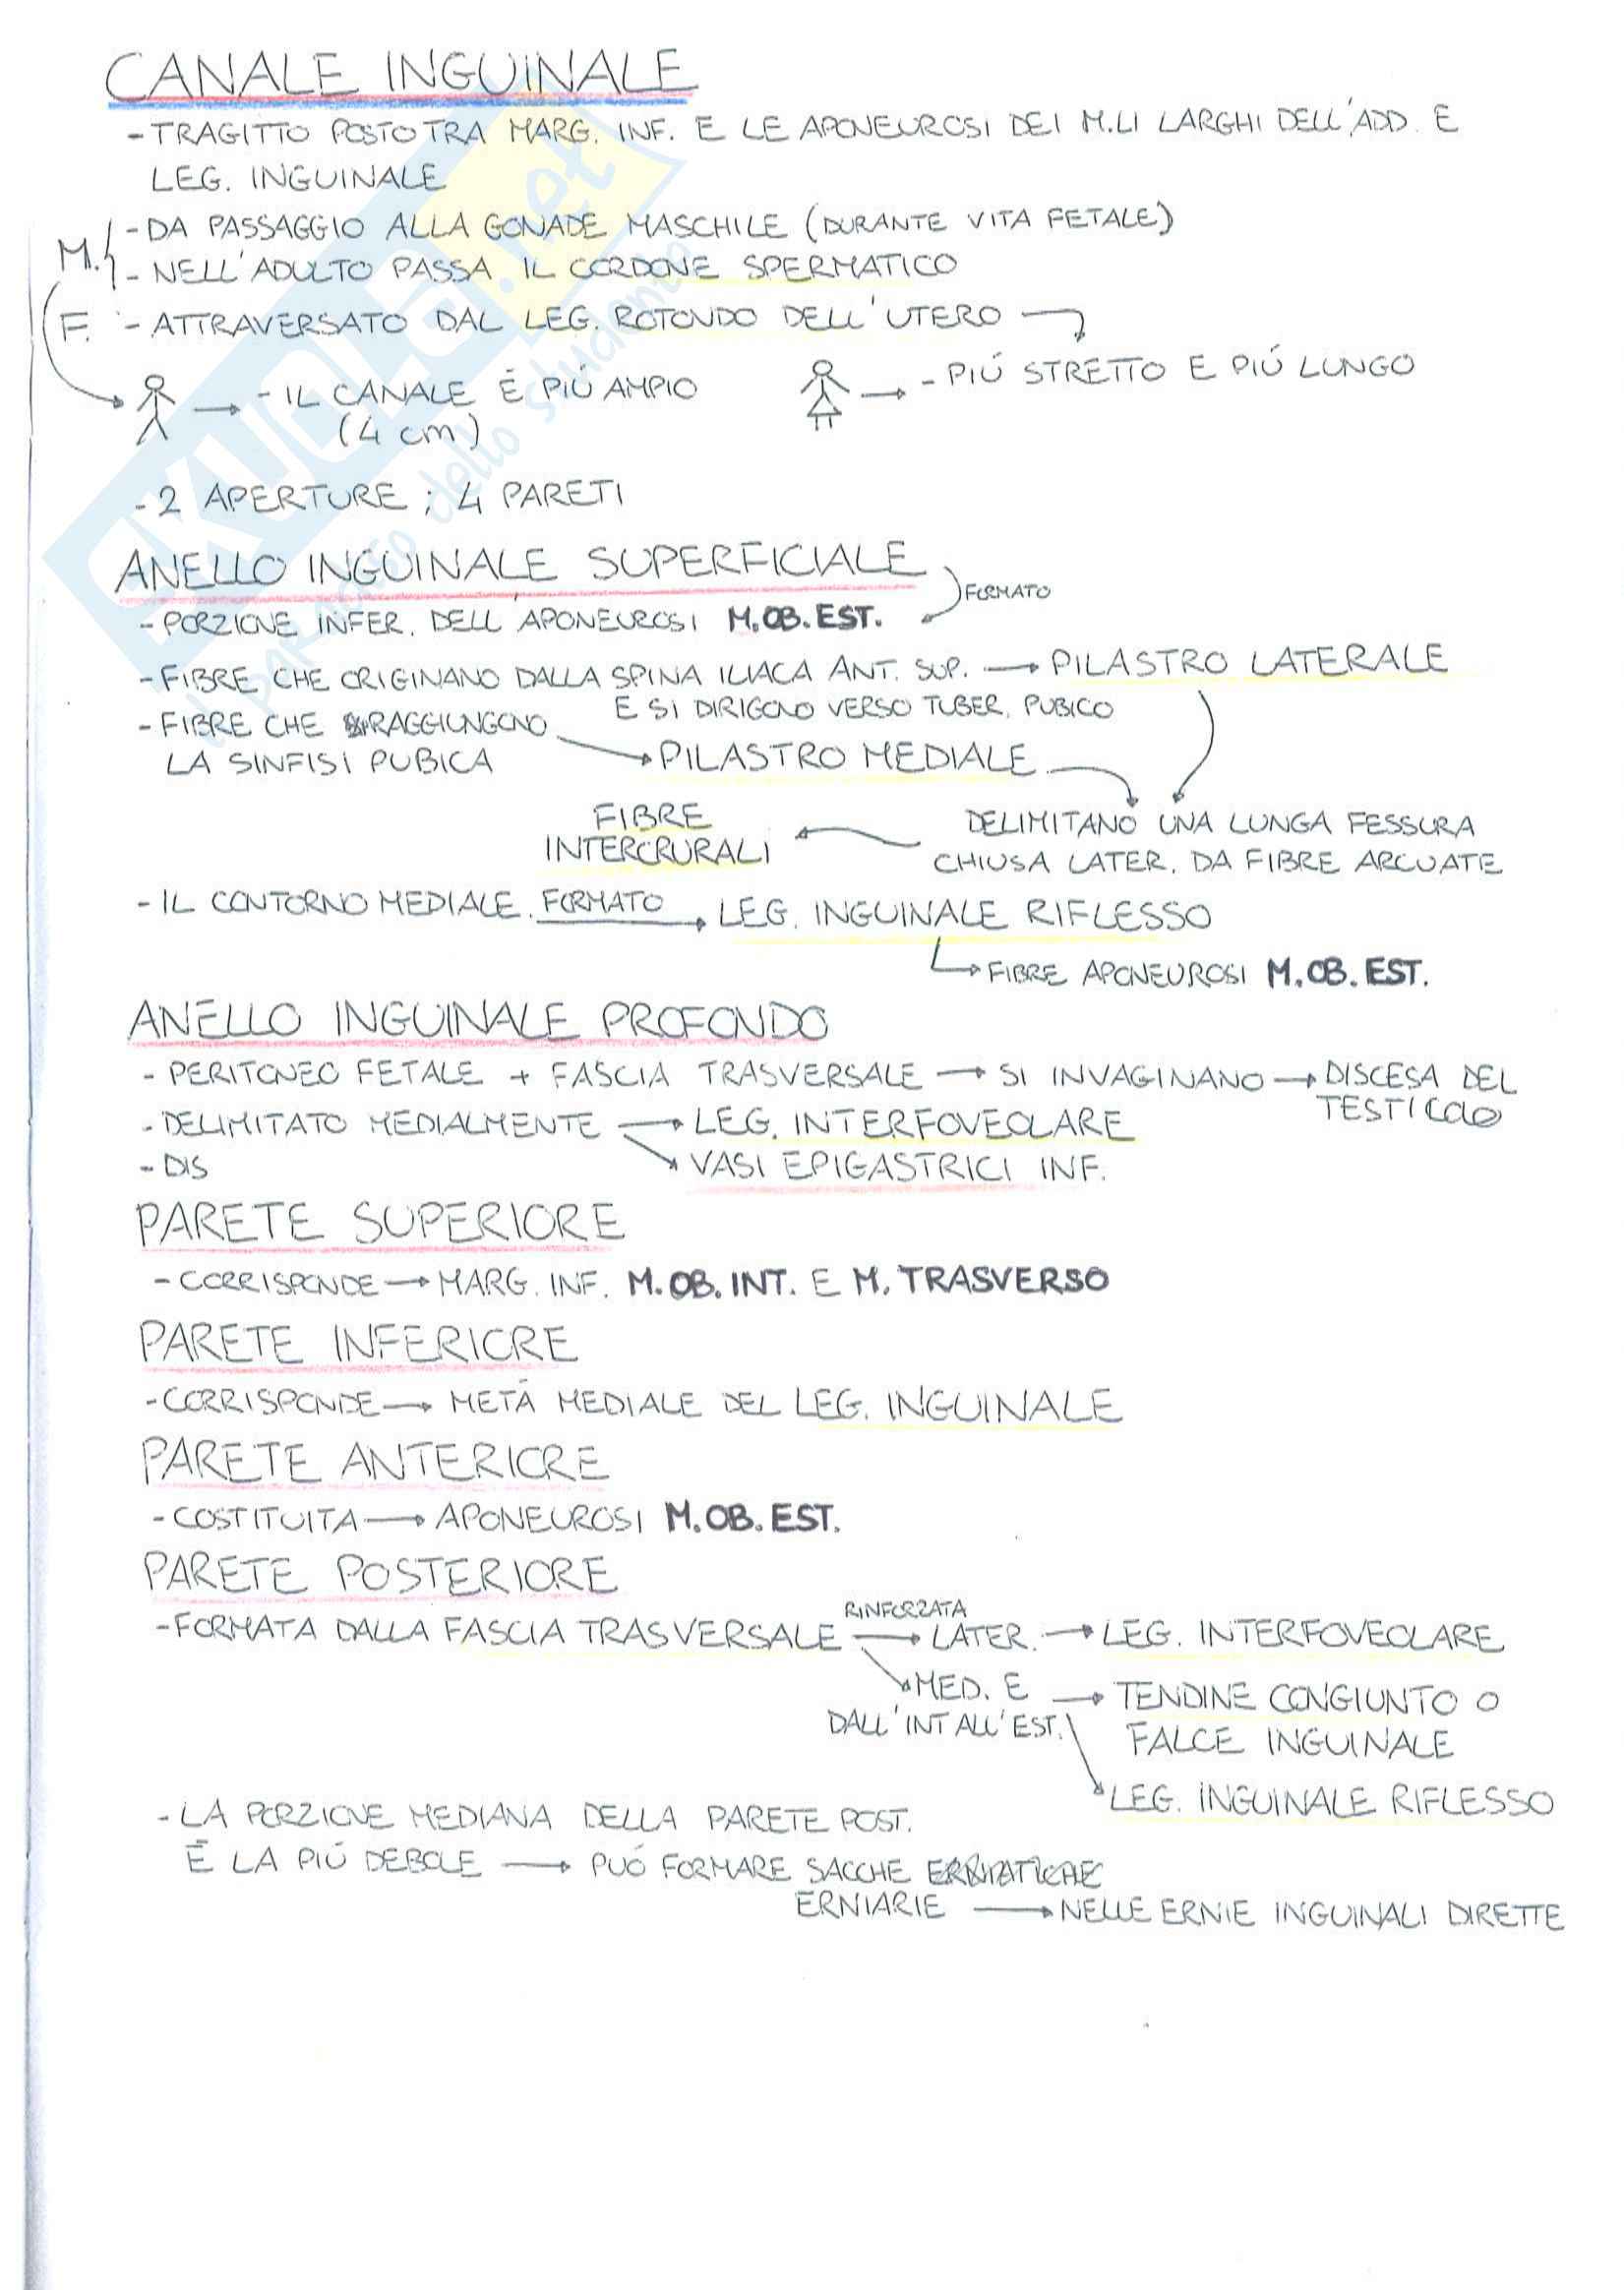 CANALE INGUINALE
- TRAGITTO POSTO TRA MARG. INF. E LE APONEUROSI DEI M.LI LARGHI DELL'ADD. E
LEG. INGUINALE
M. - DA PASSAGGIO ALLA GONADE MASCHILE (DURANTE VITA FETALE)
- NELL'ADULTO PASSA IL CORDONE SPERMATICO
F. - ATTRAVERSATO DAL LEG. ROTONDO DELL'UTERO →
→ - IL CANALE É PIÚ AMPIO
(4 cm)
→ - PIÚ STRETTO E PIÚ LUNGO
- 2 APERTURE ; 4 PARETI
ANELLO INGUINALE SUPERFICIALE
FORMATO
- PORZIONE INFER. DELL'APONEUROSI M.OB.EST.
- FIBRE CHE ORIGINANO DALLA SPINA ILIACA ANT. SUP. → PILASTRO LATERALE
E SI DIRIGONO VERSO TUBER. PUBICO
- FIBRE CHE RAGGIUNGONO
LA SINFISI PUBICA → PILASTRO MEDIALE
DELIMITANO UNA LUNGA FESSURA
CHIUSA LATER. DA FIBRE ARCUATE
FIBRE
INTERCRURALI
- IL CONTORNO MEDIALE FORMATO → LEG. INGUINALE RIFLESSO
→ FIBRE APONEUROSI M.OB.EST.
ANELLO INGUINALE PROFONDO
- PERITONEO FETALE + FASCIA TRASVERSALE → SI INVAGINANO → DISCESA DEL
TESTICOLO
- DELIMITATO MEDIALMENTE → LEG. INTERFOVEOLARE
- DIS
→ VASI EPIGASTRICI INF.
PARETE SUPERIORE
- CORRISPONDE → MARG. INF. M.OB.INT. E M.TRASVERSO
PARETE INFERIORE
- CORRISPONDE → METÁ MEDIALE DEL LEG. INGUINALE
PARETE ANTERIORE
- COSTITUITA → APONEUROSI M.OB.EST.
PARETE POSTERIORE
RINFORZATA
- FORMATA DALLA FASCIA TRASVERSALE → LATER. → LEG. INTERFOVEOLARE
MED. E → TENDINE CONGIUNTO O
DALL'INT ALL'EST. FALCE INGUINALE
LEG. INGUINALE RIFLESSO
- LA PORZIONE MEDIANA DELLA PARETE POST.
É LA PIÚ DEBOLE → PUÓ FORMARE SACCHE
ERNIARIE → NELLE ERNIE INGUINALI DIRETTE